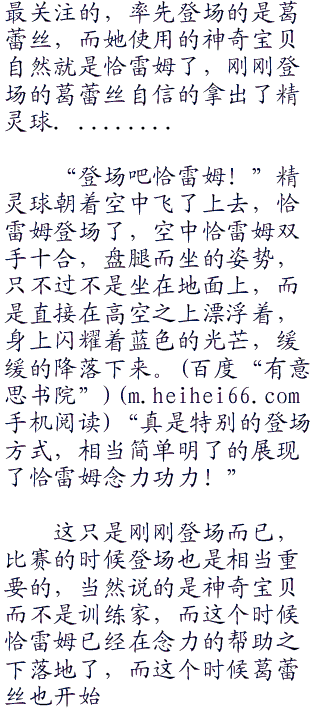 最关注的，率先登场的是葛
蕾丝，而她使用的神奇宝贝
自然就是恰雷姆了，刚刚登
场的葛蕾丝自信的拿出了精
灵球．........
“登场吧恰雷姆！”精
灵球朝着空中飞了上去，恰
雷姆登场了，空中恰雷姆双
手十合，盘腿而坐的姿势，
只不过不是坐在地面上，而
是直接在高空之上漂浮着，
身上闪耀着蓝色的光芒，缓
缓的降落下来。(百度“有意
思书院”)(m.heihei66.com
手机阅读)“真是特别的登场
方式，相当简单明了的展现
了恰雷姆念力功力！”
这只是刚刚登场而已，
比赛的时候登场也是相当重
要的，当然说的是神奇宝贝
而不是训练家，而这个时候
恰雷姆已经在念力的帮助之
下落地了，而这个时候葛蕾
丝也开始